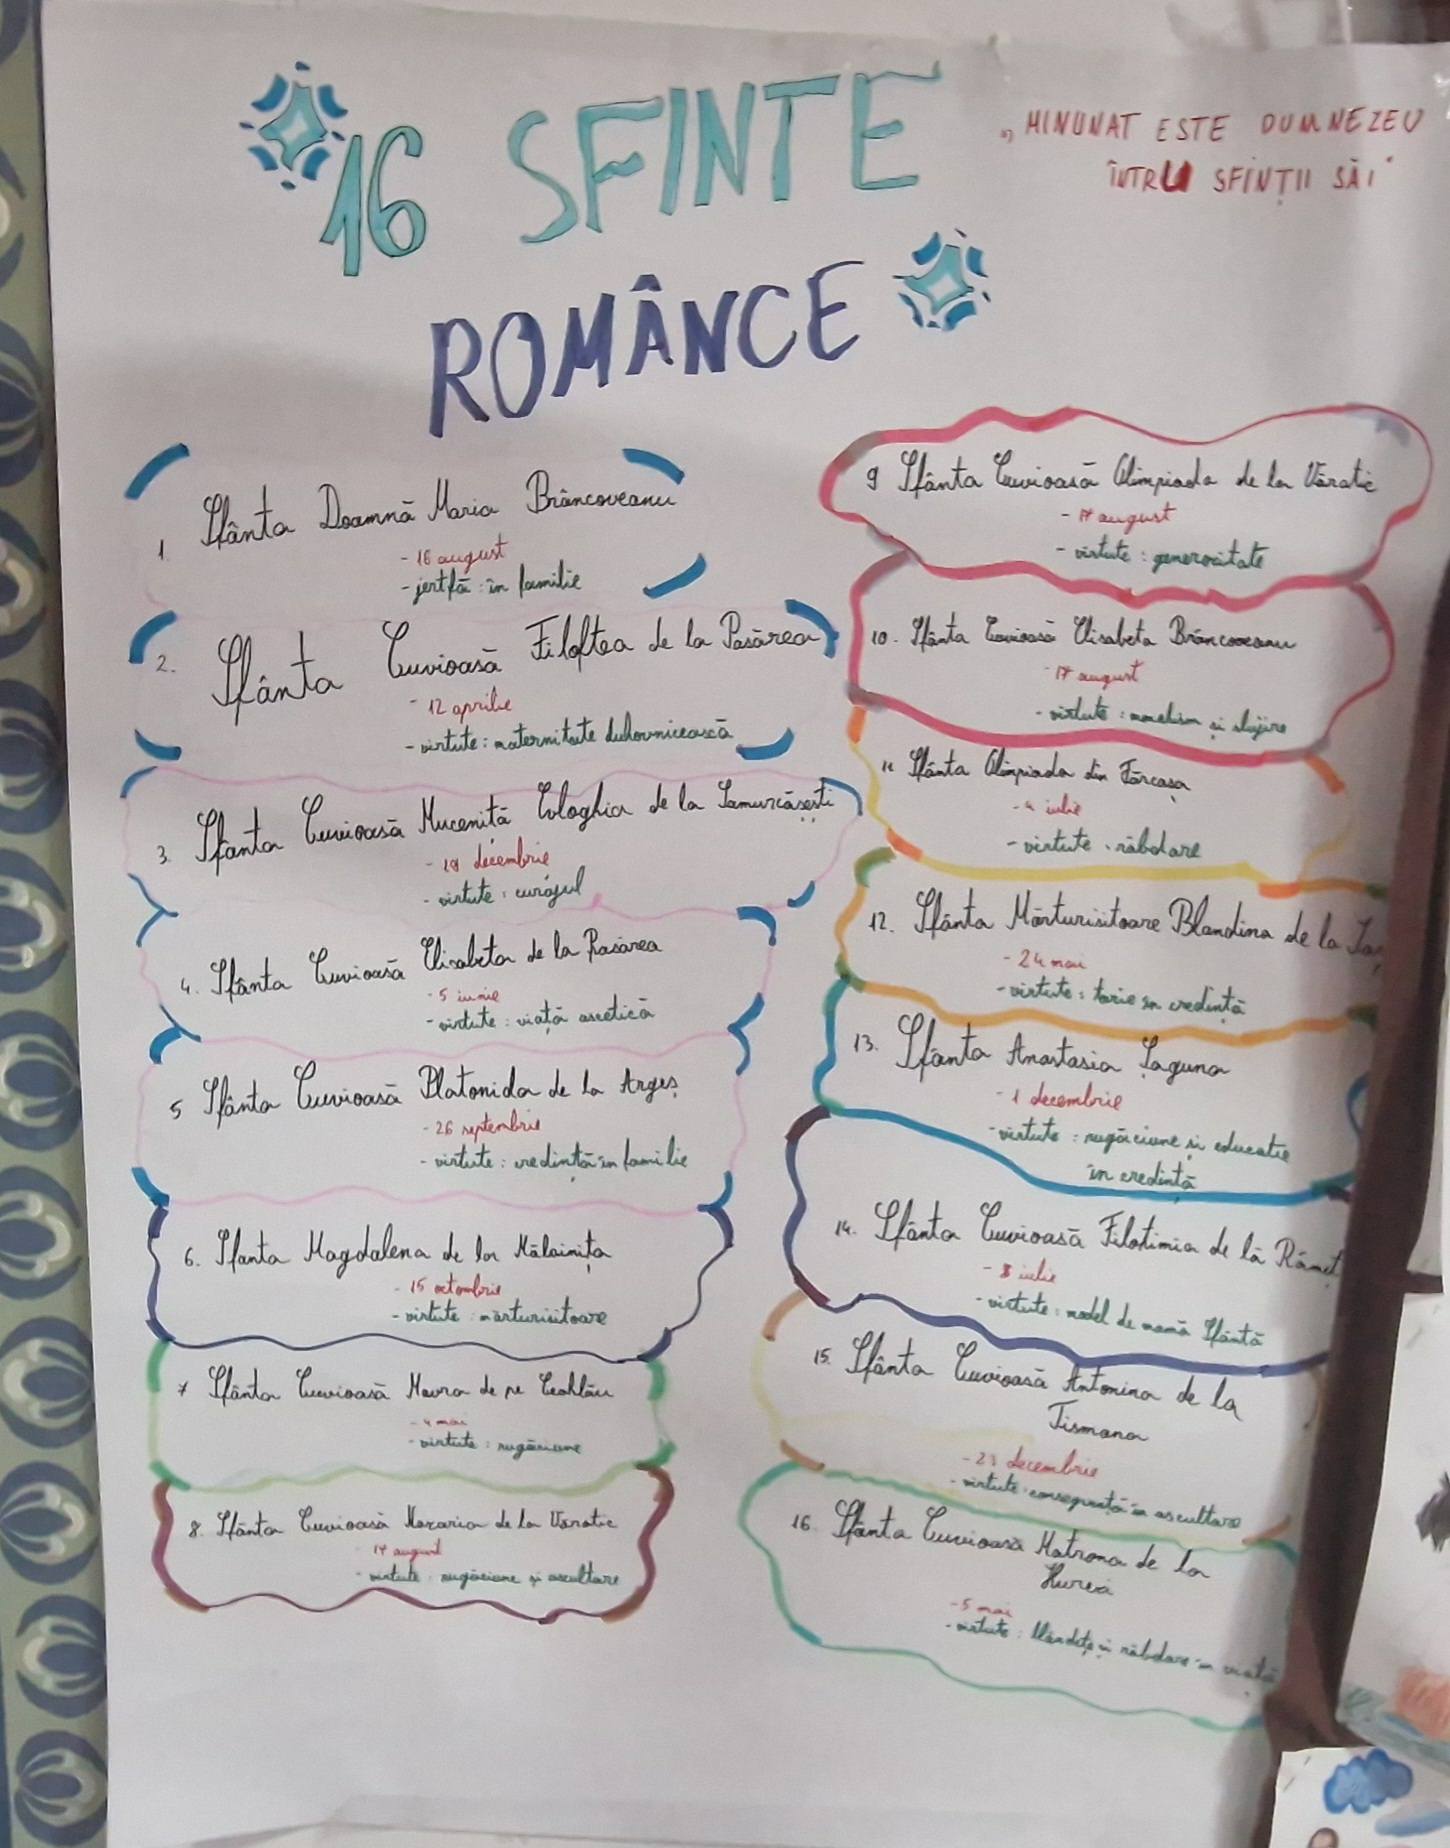 16 SFINTE
ROMÂNCE
„MINUNAT ESTE DUMNEZEU
ÎNTRU SFINȚII SĂI"
1. Sfânta Doamnă Maria Brâncoveanu
- 16 august
- jertfă în familie
2. Sfânta Cuvioasă Filoftea de la Pasărea
- 12 aprilie
- virtute: maternitate duhovnicească
3. Sfânta Cuvioasă Muceniță Evloghia de la Samurcășești
- decembrie
- virtute: curajul
4. Sfânta Cuvioasă Elisabeta de la Pasărea
- 5 iunie
- virtute: viață ascetică
5 Sfânta Cuvioasă Platonida de la Argeș
- 26 septembrie
- virtute: credință în familie
6. Sfanta Magdalena de la Mălainița
- 15 octombrie
- virtute: mărturisitoare
7 Sfânta Cuvioasă Mavra de pe Ceahlău
- 4 mai
- virtute: rugăciune
8. Sfânta Cuvioasă Nazaria de la Văratic
august
- virtute: rugăciune și ascultare
9 Sfânta Cuvioasă Olimpiada de la Văratic
- august
- virtute: generozitate
10. Sfânta Cuvioasă Elisabeta Brâncoveanu
- 17 august
- virtute: și slujire
11 Sfânta Olimpiada din Fărcașa
- 4 iulie
- virtute: răbdare
12. Sfânta Mărturisitoare Blandina de la
- 24 mai
- virtute: tărie în credință
13. Sfânta Anastasia Șaguna
- 1 decembrie
- virtute: rugăciune și educatie
în credință
14. Sfânta Cuvioasă Filotimia de la Râmeț
- iulie
- virtute: model de mamă Sfântă
15. Sfânta Cuvioasă Antonina de la
Tismana
- 23 decembrie
- virtute: consecvență în ascultare
16. Sfânta Cuvioasă Matrona de la
Hurezi
- 5 mai
- virtute: blândețe și răbdare în viață